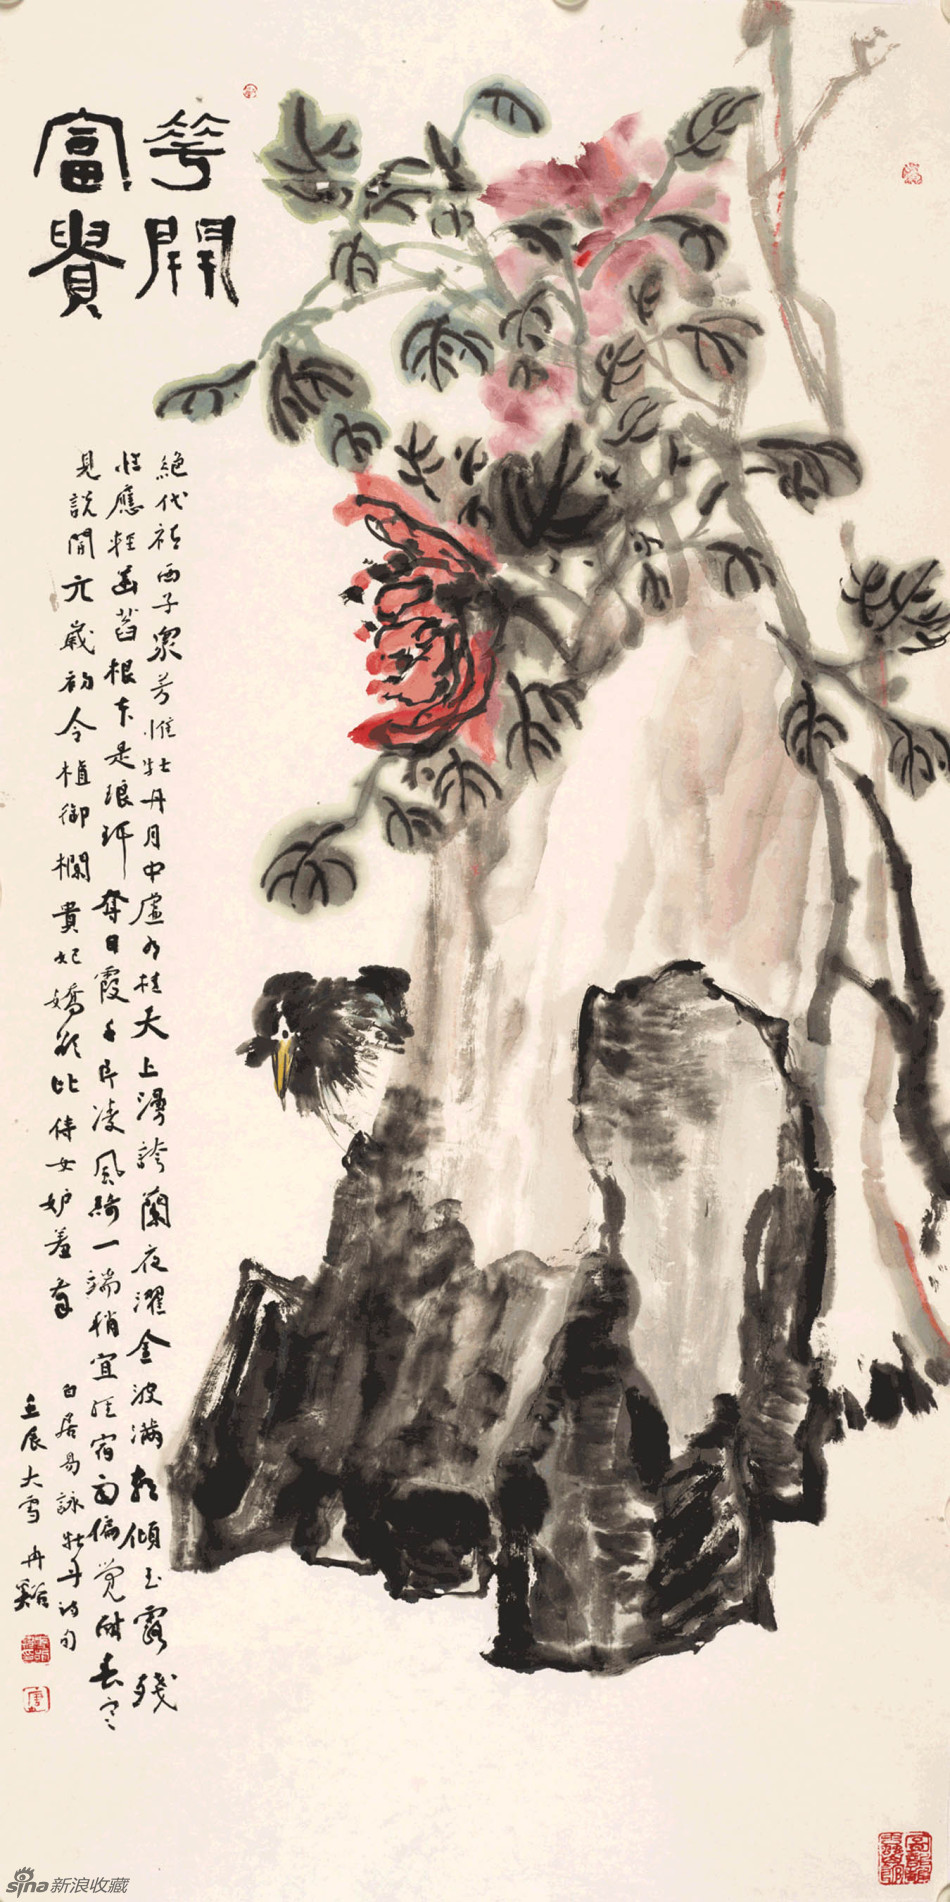 華開
富貴
絕代祗西子眾芳惟牡丹月中虛有桂天上漫誇蘭夜濯金波滿朝傾玉露殘
性應輕菡萏根本是琅玕奪目霞千片凌風綺一端稍宜經宿雨偏覺耐春寒
見說開元歲初令植御欄貴妃嬌欲比侍女妒羞看
白居易詠牡丹詩句
壬辰大雪冉谿
sina新浪收藏